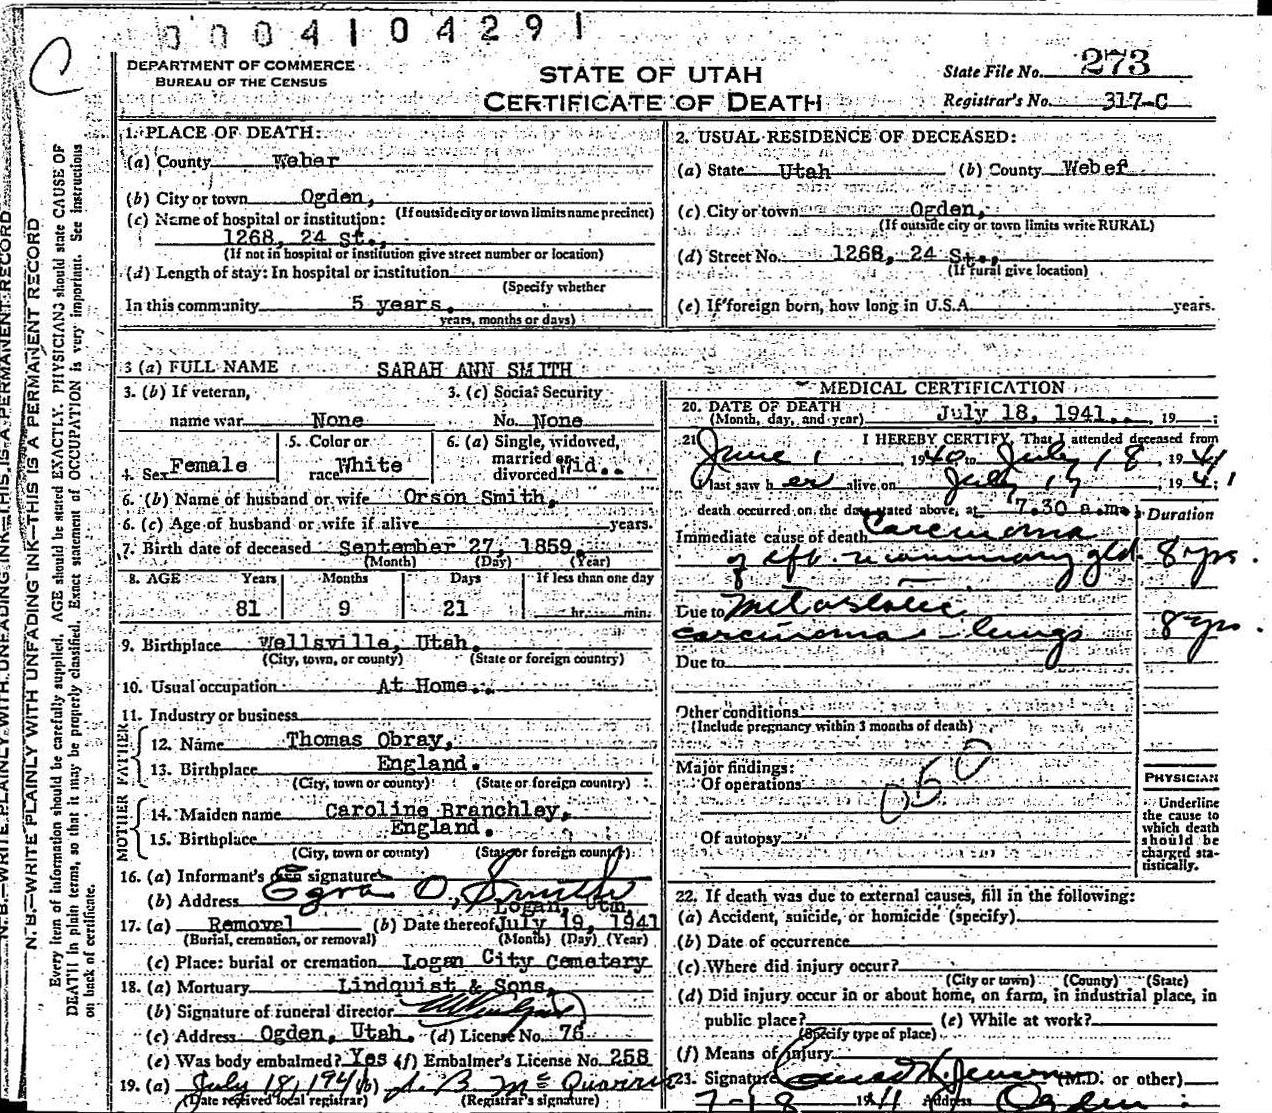 0004104291
C
DEPARTMENT OF COMMERCE
BUREAU OF THE CENSUS
STATE OF UTAH
CERTIFICATE OF DEATH
State File No. 273
Registrar's No. 317-C
N. B.—WRITE PLAINLY WITH UNFADING INK—THIS IS A PERMANENT RECORD
N. B.—WRITE PLAINLY WITH UNFADING INK—THIS IS A PERMANENT RECORD
Every item of information should be carefully supplied. AGE should be stated EXACTLY. PHYSICIANS should state CAUSE OF
DEATH in plain terms, so that it may be properly classified. Exact statement of OCCUPATION is very important. See instructions
on back of certificate.
1. PLACE OF DEATH:
(a) County Weber
(b) City or town Ogden,
(If outside city or town limits name precinct)
(c) Name of hospital or institution:
1268, 24 St.,
(If not in hospital or institution give street number or location)
(d) Length of stay: In hospital or institution
(Specify whether
In this community 5 years.
years, months or days)
2. USUAL RESIDENCE OF DECEASED:
(a) State Utah (b) County Weber
(c) City or town Ogden,
(If outside city or town limits write RURAL)
(d) Street No. 1268, 24 St.,
(If rural give location)
(e) If foreign born, how long in U.S.A. years.
3 (a) FULL NAME SARAH ANN SMITH
3. (b) If veteran,
name war None
3. (c) Social Security
No. None
4. Sex Female
5. Color or
race White
6. (a) Single, widowed,
married or
divorced Wid..
6. (b) Name of husband or wife Orson Smith,
6. (c) Age of husband or wife if alive years.
7. Birth date of deceased September 27, 1859.
(Month) (Day) (Year)
8. AGE Years Months Days If less than one day
81 9 21 hr. min.
9. Birthplace Wellsville, Utah.
(City, town, or county) (State or foreign country)
10. Usual occupation At Home.
11. Industry or business
FATHER
12. Name Thomas Obray,
13. Birthplace England.
(City, town or county) (State or foreign country)
MOTHER
14. Maiden name Caroline Branchley,
15. Birthplace England.
(City, town or county) (State or foreign country)
16. (a) Informant's signature Ezra O. Smith
(b) Address Logan, Utah.
17. (a) Removal (b) Date thereof July 19, 1941
(Burial, cremation, or removal) (Month) (Day) (Year)
(c) Place: burial or cremation Logan City Cemetery
18. (a) Mortuary Lindquist & Sons,
(b) Signature of funeral director
(c) Address Ogden, Utah. (d) License No. 76
(e) Was body embalmed? Yes (f) Embalmer's License No. 258
19. (a) July 18, 1941 (b)
(Date received local registrar) (Registrar's signature)
MEDICAL CERTIFICATION
20. DATE OF DEATH
(Month, day, and year) July 18, 1941.. , 19 ;
21. I HEREBY CERTIFY, That I attended deceased from
June 1 1940 to July 18, 1941,
I last saw her alive on July 17, 1941;
death occurred on the date stated above, at 7.30 a.m.
Duration
Immediate cause of death Carcinoma
of left mammary gld. 8 yrs.
Due to Metastatic
carcinoma - lungs 8 yrs.
Due to
Other conditions
(Include pregnancy within 3 months of death)
Major findings:
Of operations
050
Of autopsy
PHYSICIAN
Underline
the cause to
which death
should be
charged sta-
tistically.
22. If death was due to external causes, fill in the following:
(a) Accident, suicide, or homicide (specify)
(b) Date of occurrence
(c) Where did injury occur?
(City or town) (County) (State)
(d) Did injury occur in or about home, on farm, in industrial place, in
public place? (e) While at work?
(Specify type of place)
(f) Means of injury
23. Signature (M.D. or other)
7-18 1941 Address Ogden